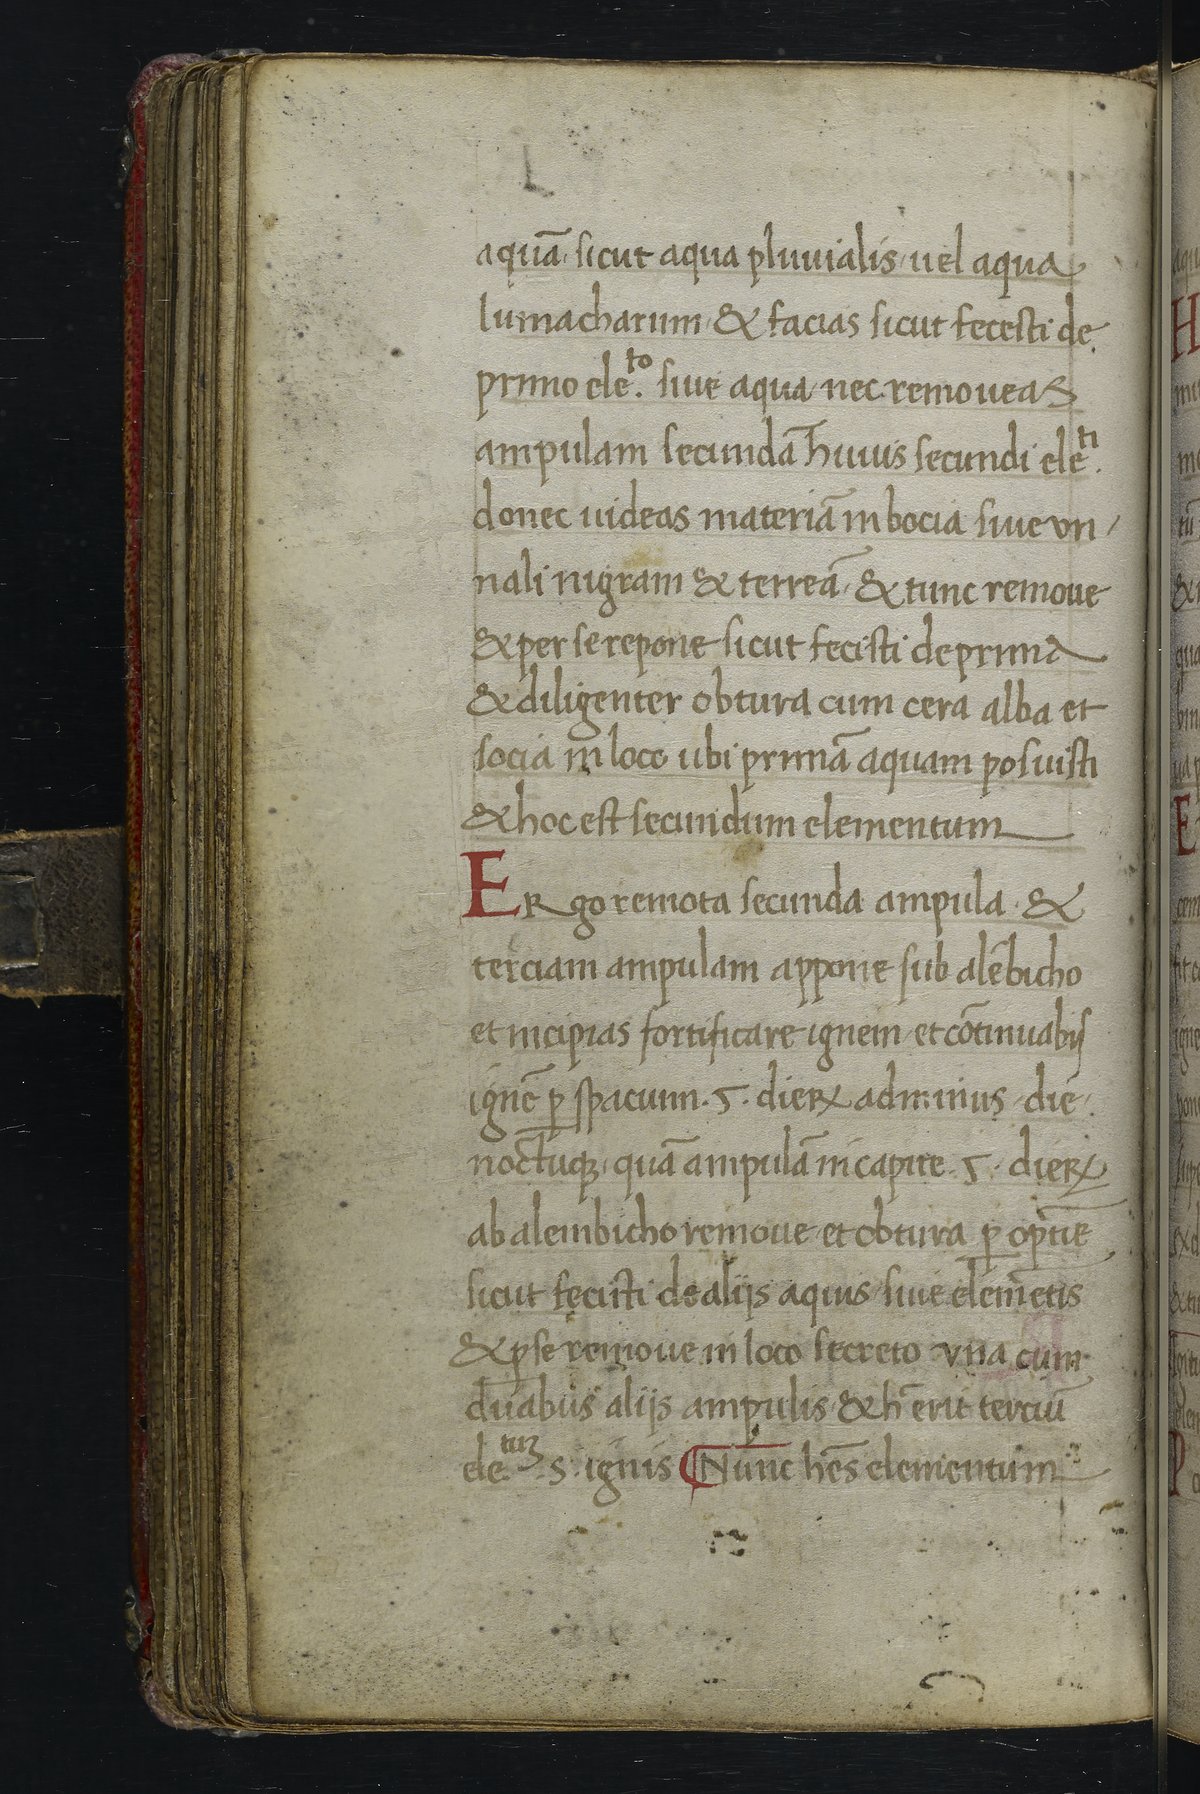 aquā, sicut aqua pluuialis, uel aqua
lumacharum, & facias sicut fecesti de
primo ele.to siue aqua nec remoueas
ampulam secundā huius secundi ele.ti
donec uideas materiā in bocia siue vri
nali nigram & terreā, & tunc remoue
& per se repone sicut fecisti de prima
& diligenter obtura cum cera alba et
socia in loco ubi primā aquam posuisti
& hoc est secundum elementum
Ergo remota secunda ampula. &
terciam ampulam appone sub alēbicho
et incipias fortificare ignem et cōtinuabis
ignē ꝑ spacium .5. dieꝝ ad minus die
noctuqꝫ, quā ampulā in capite .5. dieꝝ
ab alembicho remoue et obtura ꝑ optīe
sicut fecisti de alijs aquis siue elemētis
& ꝑ se remoue in loco secreto vna cum
duabus alijs ampulis & h̄ erit terciū
ele.tuꝫ .s. ignis ¶ Nunc hēs elementum